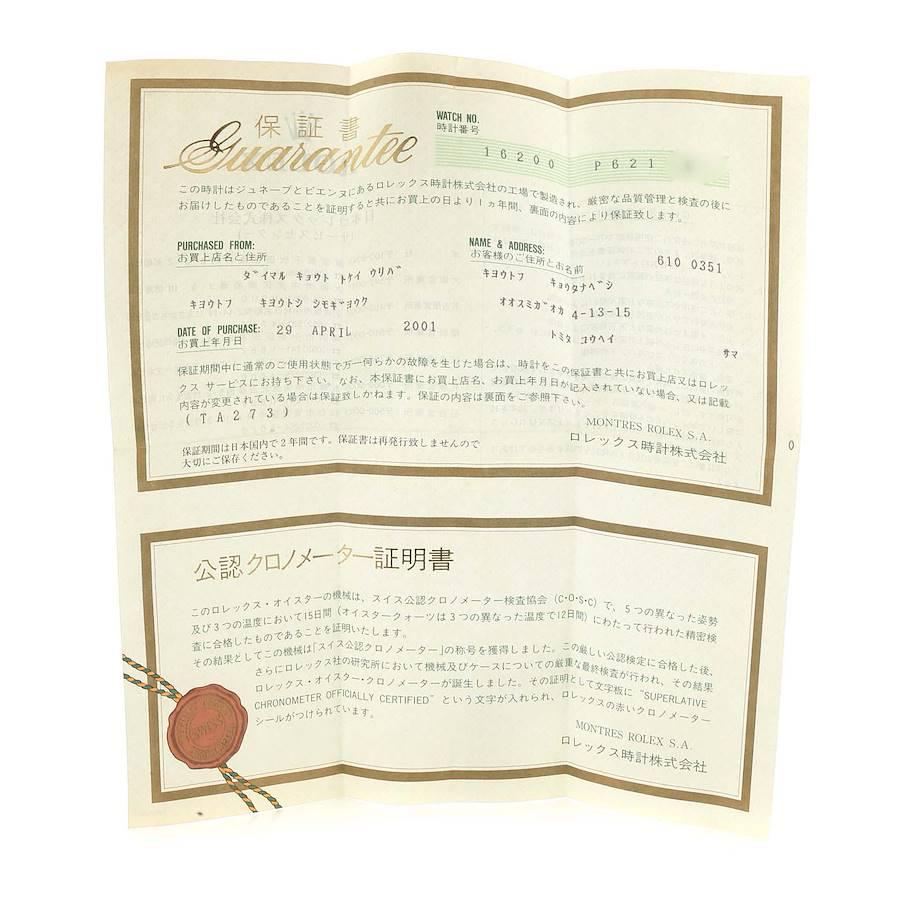 保証書
Guarantee
WATCH NO.
時計番号
16200 P621
この時計はジュネーブとビエンヌにあるロレックス時計株式会社の工場で製造され、厳密な品質管理と検査の後に
お届けしたものであることを証明すると共にお買上の日より1ヵ年間、裏面の内容により保証致します。
PURCHASED FROM:
お買上店名と住所
ダイマル キョウト トケイ ウリバ
キヨウトフ キヨウトシ シモギヨウク
NAME & ADDRESS:
お客様のご住所とお名前
610 0351
キヨウトフ キョウタナベシ
オオスミガオカ 4-13-15
トミタ コウヘイ
サマ
DATE OF PURCHASE: 29 APRIL 2001
お買上年月日
保証期間中に通常のご使用状態で万一何らかの故障を生じた場合は、時計をこの保証書と共にお買上店又はロレッ
クス サービスにお持ち下さい。なお、本保証書にお買上店名、お買上年月日が記入されていない場合、又は記載
内容が変更されている場合は保証致しかねます。保証の内容は裏面をご参照下さい。
(TA273)
MONTRES ROLEX S.A.
ロレックス時計株式会社
保証期間は日本国内で2年間です。保証書は再発行致しませんので
大切にご保存ください。
公認クロノメーター証明書
このロレックス・オイスターの機械は、スイス公認クロノメーター検査協会 (C・O・S・C) で、5つの異なった姿勢
及び3つの温度において15日間 (オイスタークォーツは3つの異なった温度で12日間) にわたって行われた精密検
査に合格したものであることを証明いたします。
その結果としてこの機械は「スイス公認クロノメーター」の称号を獲得しました。この厳しい公認検定に合格した後、
さらにロレックス社の研究所において機械及びケースについての厳重な最終検査が行われ、その結果
ロレックス・オイスター・クロノメーターが誕生しました。その証明として文字板に "SUPERLATIVE
CHRONOMETER OFFICIALLY CERTIFIED" という文字が入れられ、ロレックスの赤いクロノメーター
シールがつけられています。
MONTRES ROLEX S.A.
ロレックス時計株式会社